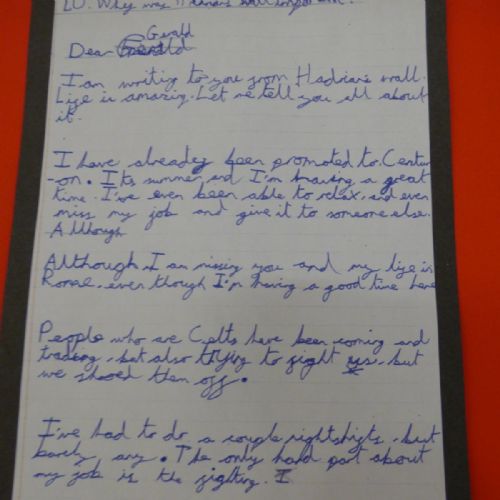 LO: Why was Hadrian's wall important?
Gerald
Dear
I am writing to you from Hadrians wall.
Life is amazing. Let me tell you all about
it.
I have already been promoted to Centur
-on. Its summer and I'm having a great
time. I've even been able to relax, and even
miss my job and give it to someone else.
Although
Although I am missing you and my life in
Rome, even though I'm having a good time here
People who are Celts have been coming and
trading, but also trying to fight us, but
we shooed them off.
I've had to do a couple nightshifts, but
barely any. The only hard part about
my job is the fighting. I